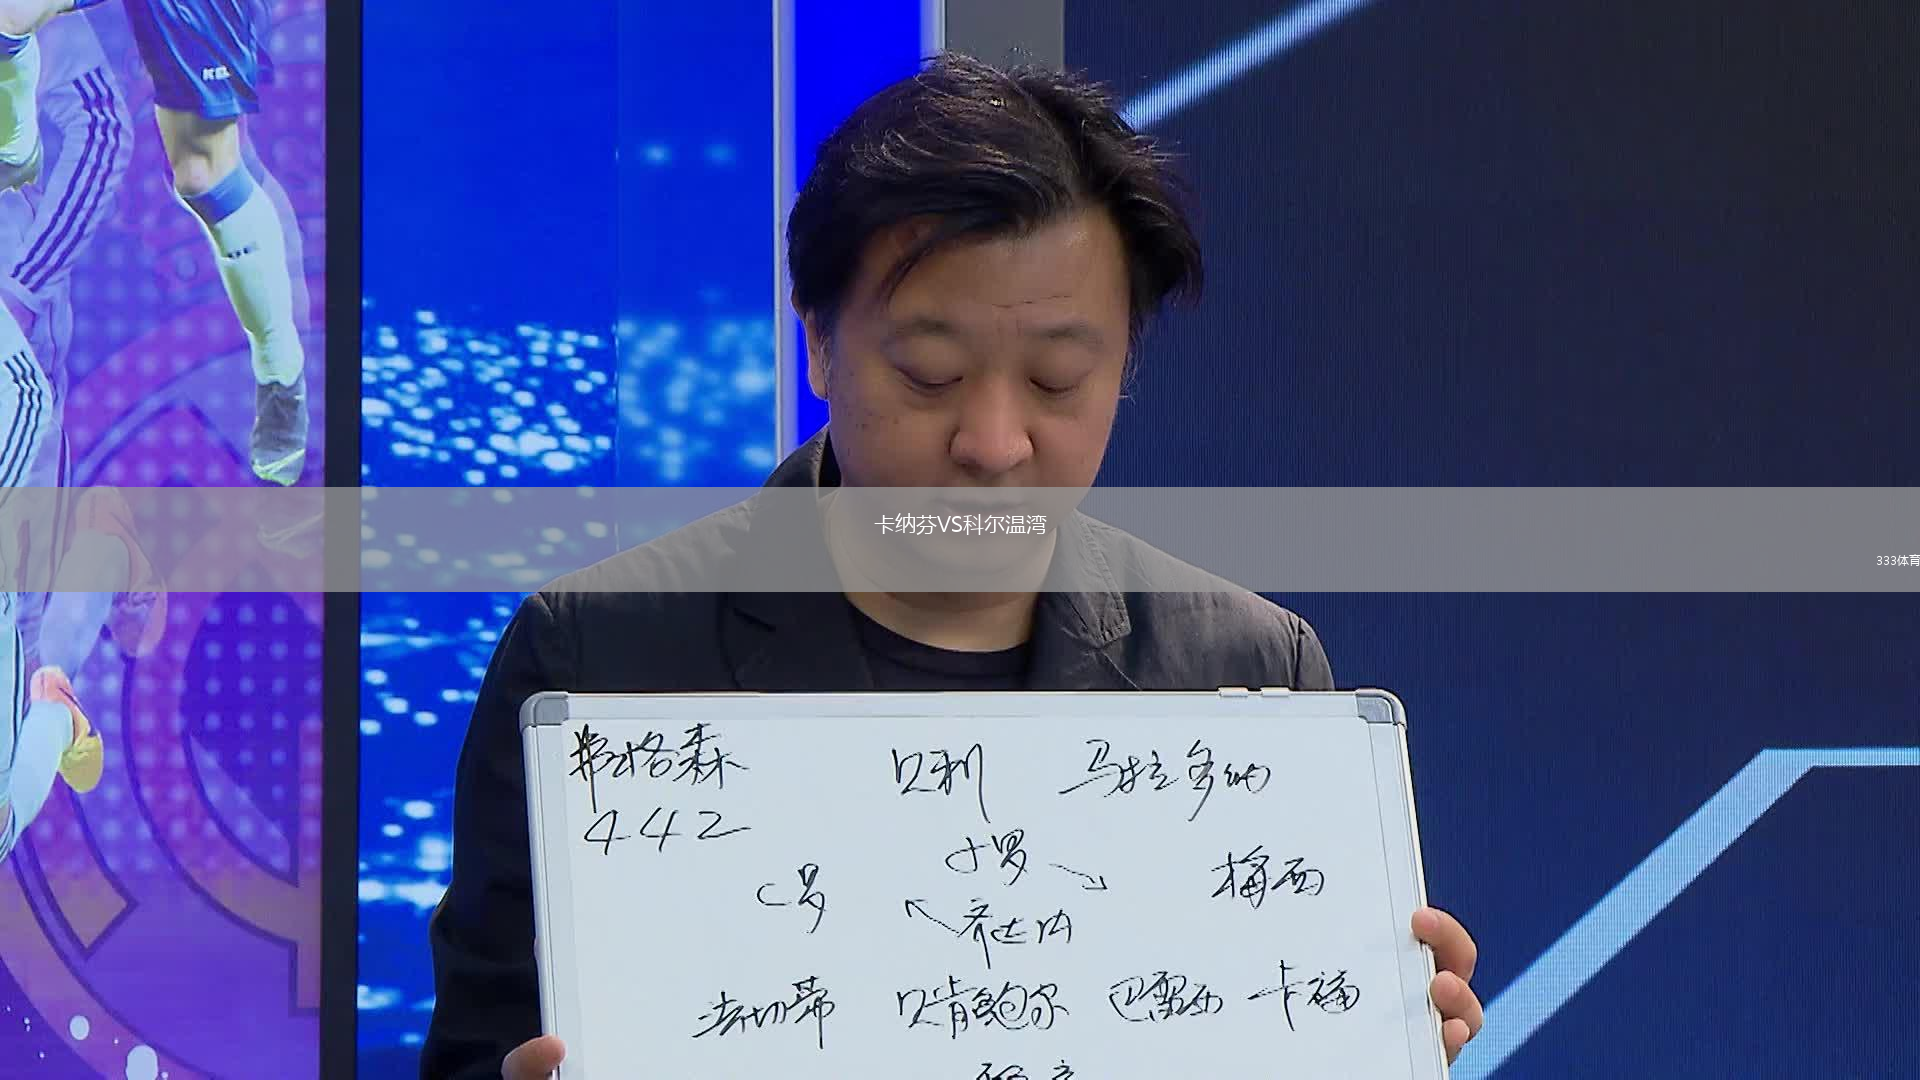 卡纳芬VS科尔温湾
333体育
弗格森 贝利 马拉多纳
442
小罗
C罗 梅西
齐达内
法切蒂 贝肯鲍尔 巴雷西 卡福